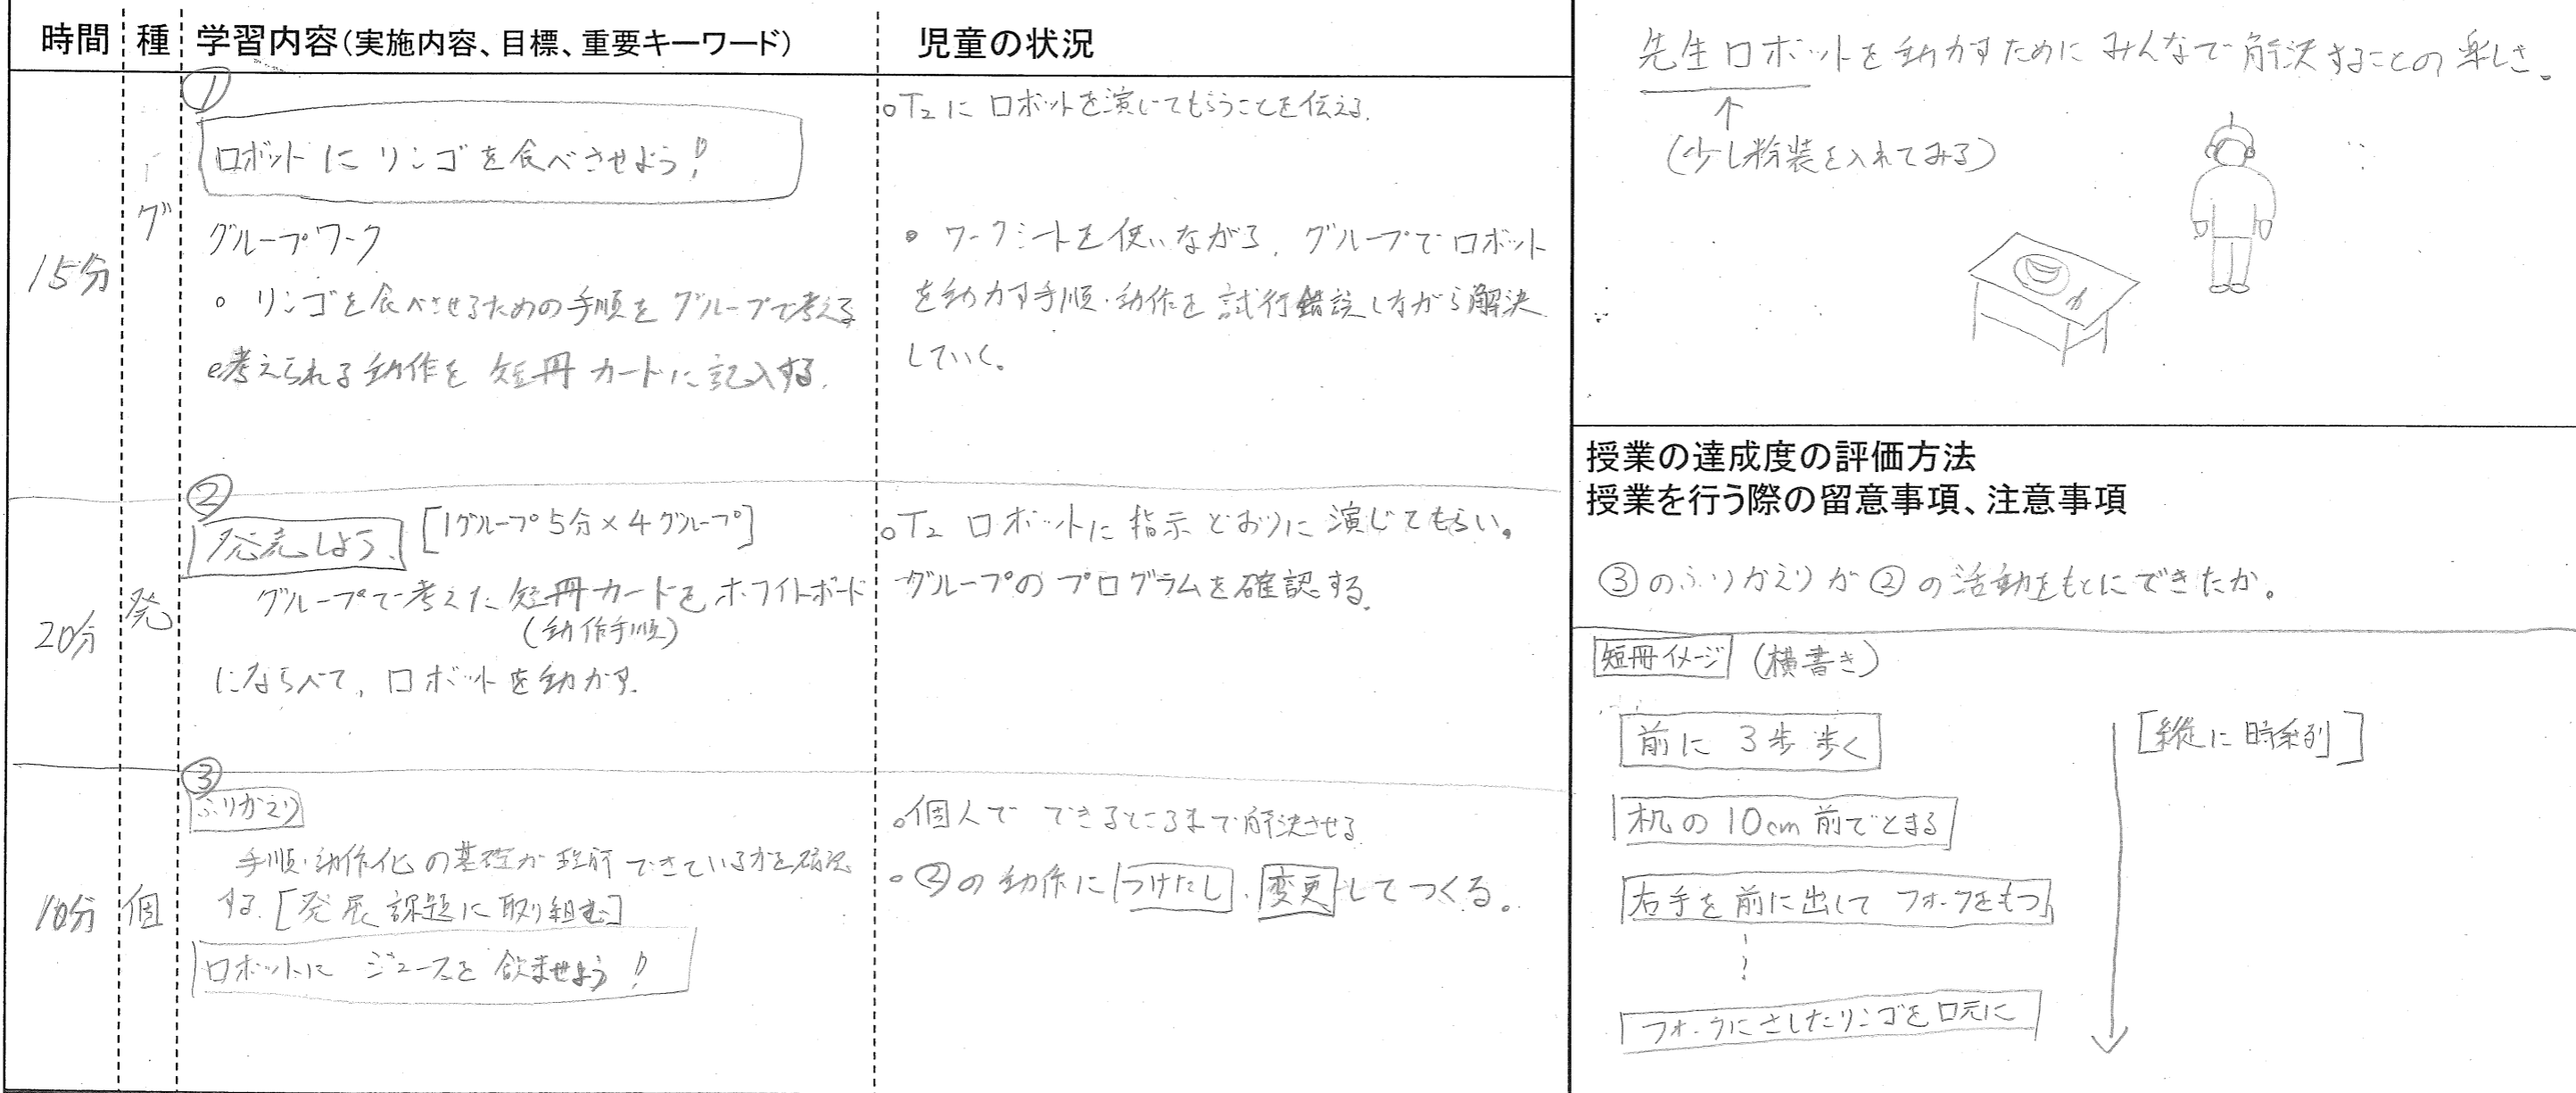 時間 種 学習内容(実施内容、目標、重要キーワード) 児童の状況
15分
グ
①
ロボットに リンゴを食べさせよう!
グループワーク
○ リンゴを食べさせるための手順をグループで考える
○考えられる動作を短冊カードに記入する.
○T₂に ロボットを演じてもらうことを伝える.
● ワークシートを使いながら, グループでロボット
を動かす手順・動作を試行錯誤しながら解決
していく。
20分
発
②
発表しよう [1グループ5分×4グループ]
グループで考えた短冊カードをホワイトボード
(動作手順)
にならべて, ロボットを動かす.
○T₂ ロボットに指示どおりに演じてもらい。
グループのプログラムを確認する.
10分
個
③
ふりかえり
手順・動作化の基礎が理解できているかを確認
する. [発展課題に取り組む]
ロボットに ジュースを飲ませよう!
○個人で できるところまで解決させる
○②の動作につけたし、変更してつくる。
先生ロボットを動かすために みんなで解決することの楽しさ。
↑
(少し粉装を入れてみる)
授業の達成度の評価方法
授業を行う際の留意事項、注意事項
③のふりかえりが②の活動をもとにできたか。
短冊イメージ (横書き)
前に 3歩 歩く
[縦に時系列]
机の 10cm 前でとまる
右手を前に出して フォークをもつ
フォークにさしたリンゴを口元に